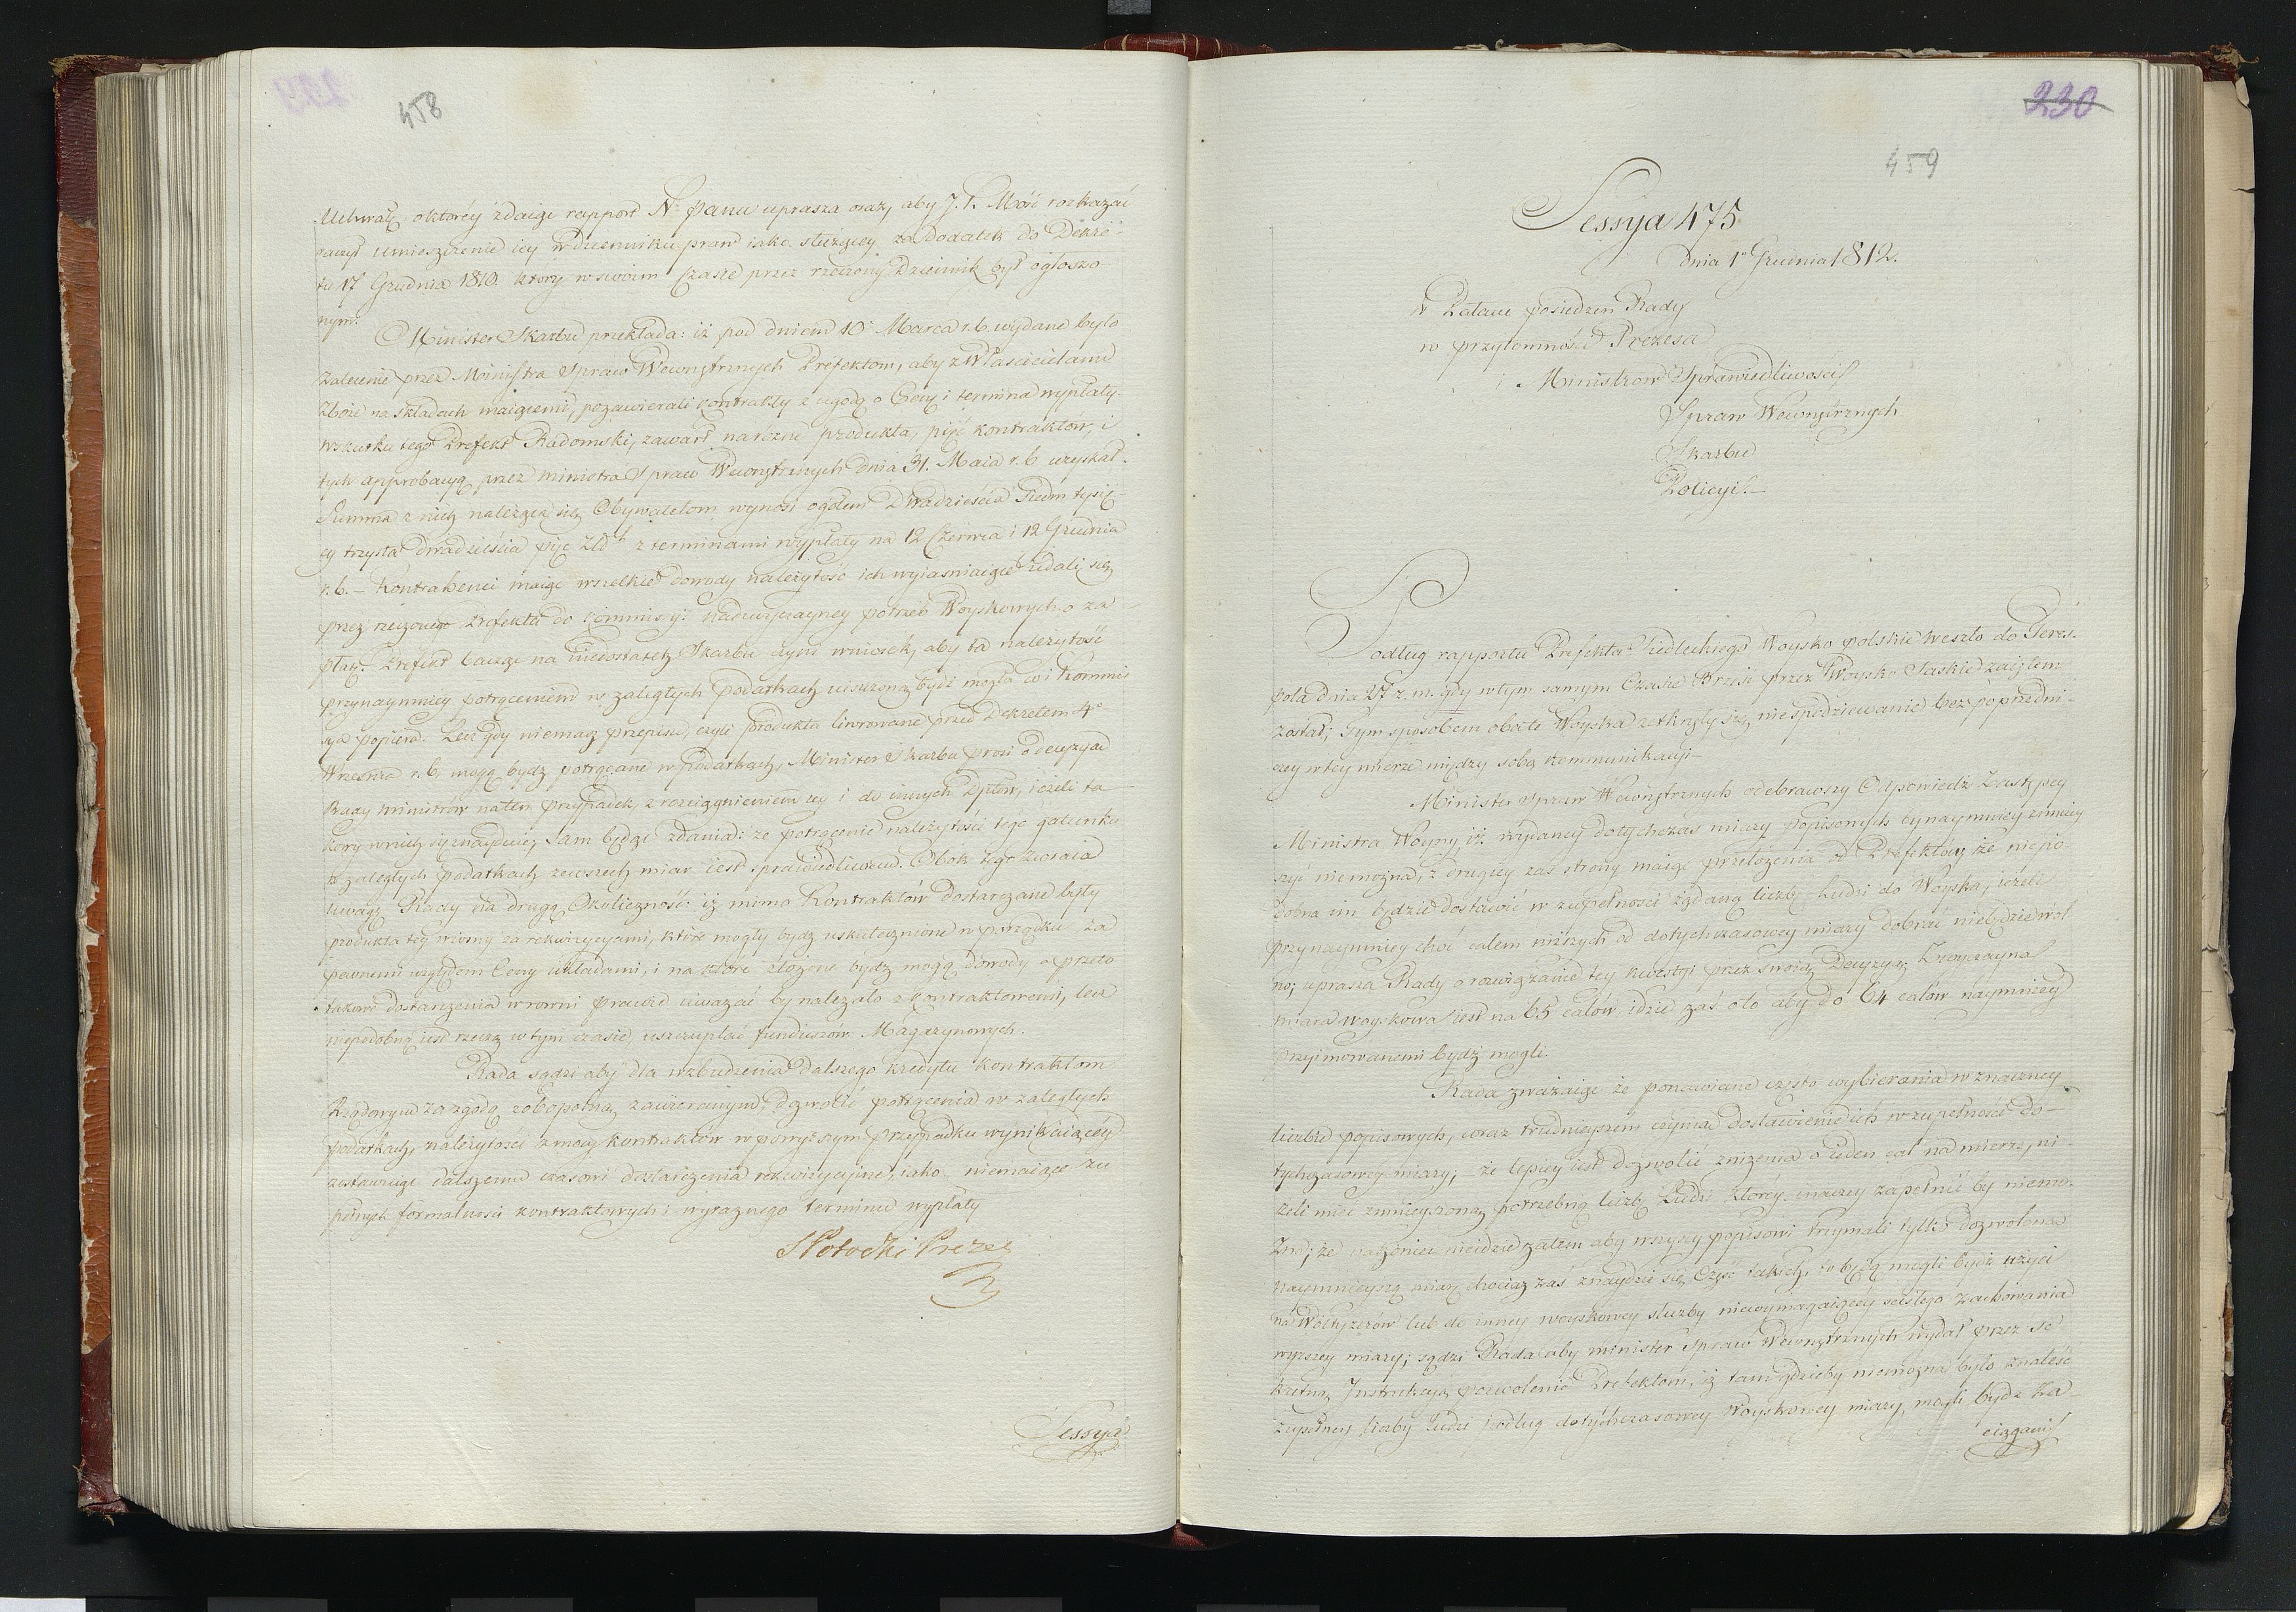 458
Uchwałę, o którey zdaiąc rapport N. panu uprasza oraz, aby J. K. Mość rozkazać
raczył umieszczenie iey w Dzienniku praw iako służącey za Dodatek do Dekre-
tu 17 Grudnia 1810. który w swoim czasie przez rzeczony Dziennik był ogłoszo
nym.
Minister Skarbu przekłada: iż pod dniem 10 Marca r. b. wydane było
zalecenie przez Ministra Spraw Wewnętrznych Prefektom, aby z Właścicielami
zboże na składach maiącemi, pozawierali kontrakty z ugodą o Ceny i termina wypłaty.
W skutku tego Prefekt Radomski, zawarł na różne produkta, pięć kontraktów, i
tych approbacyą przez ministra Spraw Wewnętrznych dnia 31. Maia r. b. uzyskał.
Summa z nich należąca się Obywatelom wynosi ogółem Dwadzieścia Siedm tysię-
cy trzysta dwadzieścia pięć Złp. z terminami wypłaty na 12 Czerwca i 12 Grudnia
r. b. – Kontrahenci maiąc wszelkie dowody należytość ich wyiaśniaiące udali się
przez rzeczonego Prefekta do Kommissyi nadwyczayney potrzeb Woyskowych o za-
płatę. Prefekt bacząc na niedostatek Skarbu czyni wniosek, aby ta należytość
przynaymniey potrąceniem w zaległych podatkach uiszczoną bydź mogła co i Kommis
sya popiera. Lecz gdy niemasz przepisu, czyli produkta liwrowane przed Dekretem 4o
Września r. b. mogą bydź potrącane w podatkach, Minister Skarbu prosi o decyzyą
Rady ministrów na ten przypadek, z rozciągnieniem iey i do innych Dptów, ieżeli ta-
kowy w nich się znayduie, Sam będąc zdania: że potrącenie należytości tego gatunku
w zaległych podatkach ze wszech miar iest sprawiedliwem. Obok tego zwraca
uwagę Rady na drugą Okoliczność: iż mimo Kontraktów dostarczane były
produkta tey wiosny za rekwizycyami, które mogły bydź uskutecznione w porządku za
pewnemi względem Ceny układami, i na które złożone bydź mogą dowody a przeto
takowe dostarczenia w rowni prawie uważać by należało z kontraktowemi, lecz
niepodobną iest rzeczą w tym czasie, uszczuplać funduszów Magazynowych.
Rada sądzi aby dla wzbudzenia dalszego kredytu kontraktom
Rządowym za zgodą zobopolną zawieranym, dozwolić potrącenia w zaległych
podatkach, należytości z mocy kontraktów w powyższym przypadku wynikaiącey
zostawuiąc dalszemu czasowi dostarczenia rekwizycyine, iako niemaiące zu
pełnych formalności kontraktowych i wyraznego terminu wypłaty
S Potocki Prezes
Sessya
230
459
Sessya 475
Dnia 1o Grudnia 1812.
w Pałacu posiedzeń Rady
w przytomności Prezesa
i Ministrów Sprawiedliwości
Spraw Wewnętrznych
Skarbu
Policyi. –
Podług rapportu Prefekta Siedleckiego Woysko polskie weszło do Teres-
pola dnia 27 z. m. gdy w tym samym Czasie Brześć przez Woysko Saskie zaiętem
został; Tym sposobem oba te Woyska zetknęły się niespodziewanie bez poprzedni-
czey w tey mierze między sobą kommunikacyi –
Minister Spraw Wewnętrznych odebrawszy Odpowiedź Zastępcy
Ministra Woyny, iż wydaney dotychczas miary popisowych bynaymniey zmniey
szyć niemożna, z drugiey zaś strony maiąc przełożenia od Prefektów że niepo
dobna im będzie dostawić w zupełności żądaną liczbę Ludzi do Woyska, ieżeli
przynaymniey choć calem niższych od dotychczasowey miary dobrać niebędzie wol
no; uprasza Rady o rozwiązanie tey kwestyi przez swoią Decyzyą. Zwyczayna
miara woyskowa iest na 65 calów, idzie zaś o to aby do 64 calów naymniey
przyimowanemi bydź mogli.
Rada zważaiąc że ponawiane często wybierania w znaczney
liczbie popisowych, coraz trudnieyszem czynią dostawienie ich w zupełności do-
tychczasowey miary; że lepiey iest dozwolić zniżenia o ieden cal na mierze, ni-
żeli mieć zmnieyszoną potrzebną liczbę Ludzi którey inaczey zapełnić by niemo-
żna; że nakoniec nieidzie zatem aby wszyscy popisowi trzymali tylko dozwoloną
naymnieyszą miarę chociaż zaś znaydzie się Część takich, to będą mogli bydź użyci
na Woltyżerów lub do inney woyskowey służby niewymagaiącey ścisłego zachowania
wyższey miary; sądzi Rada aby minister Spraw Wewnętrznych wydał przez se
kretną Instrukcyą pozwolenie Prefektom, iż tam gdzieby niemożna było znaleść
zupełney liczby Ludzi podług dotychczasowey Woyskowey miary, mogli bydź za-
ciągani